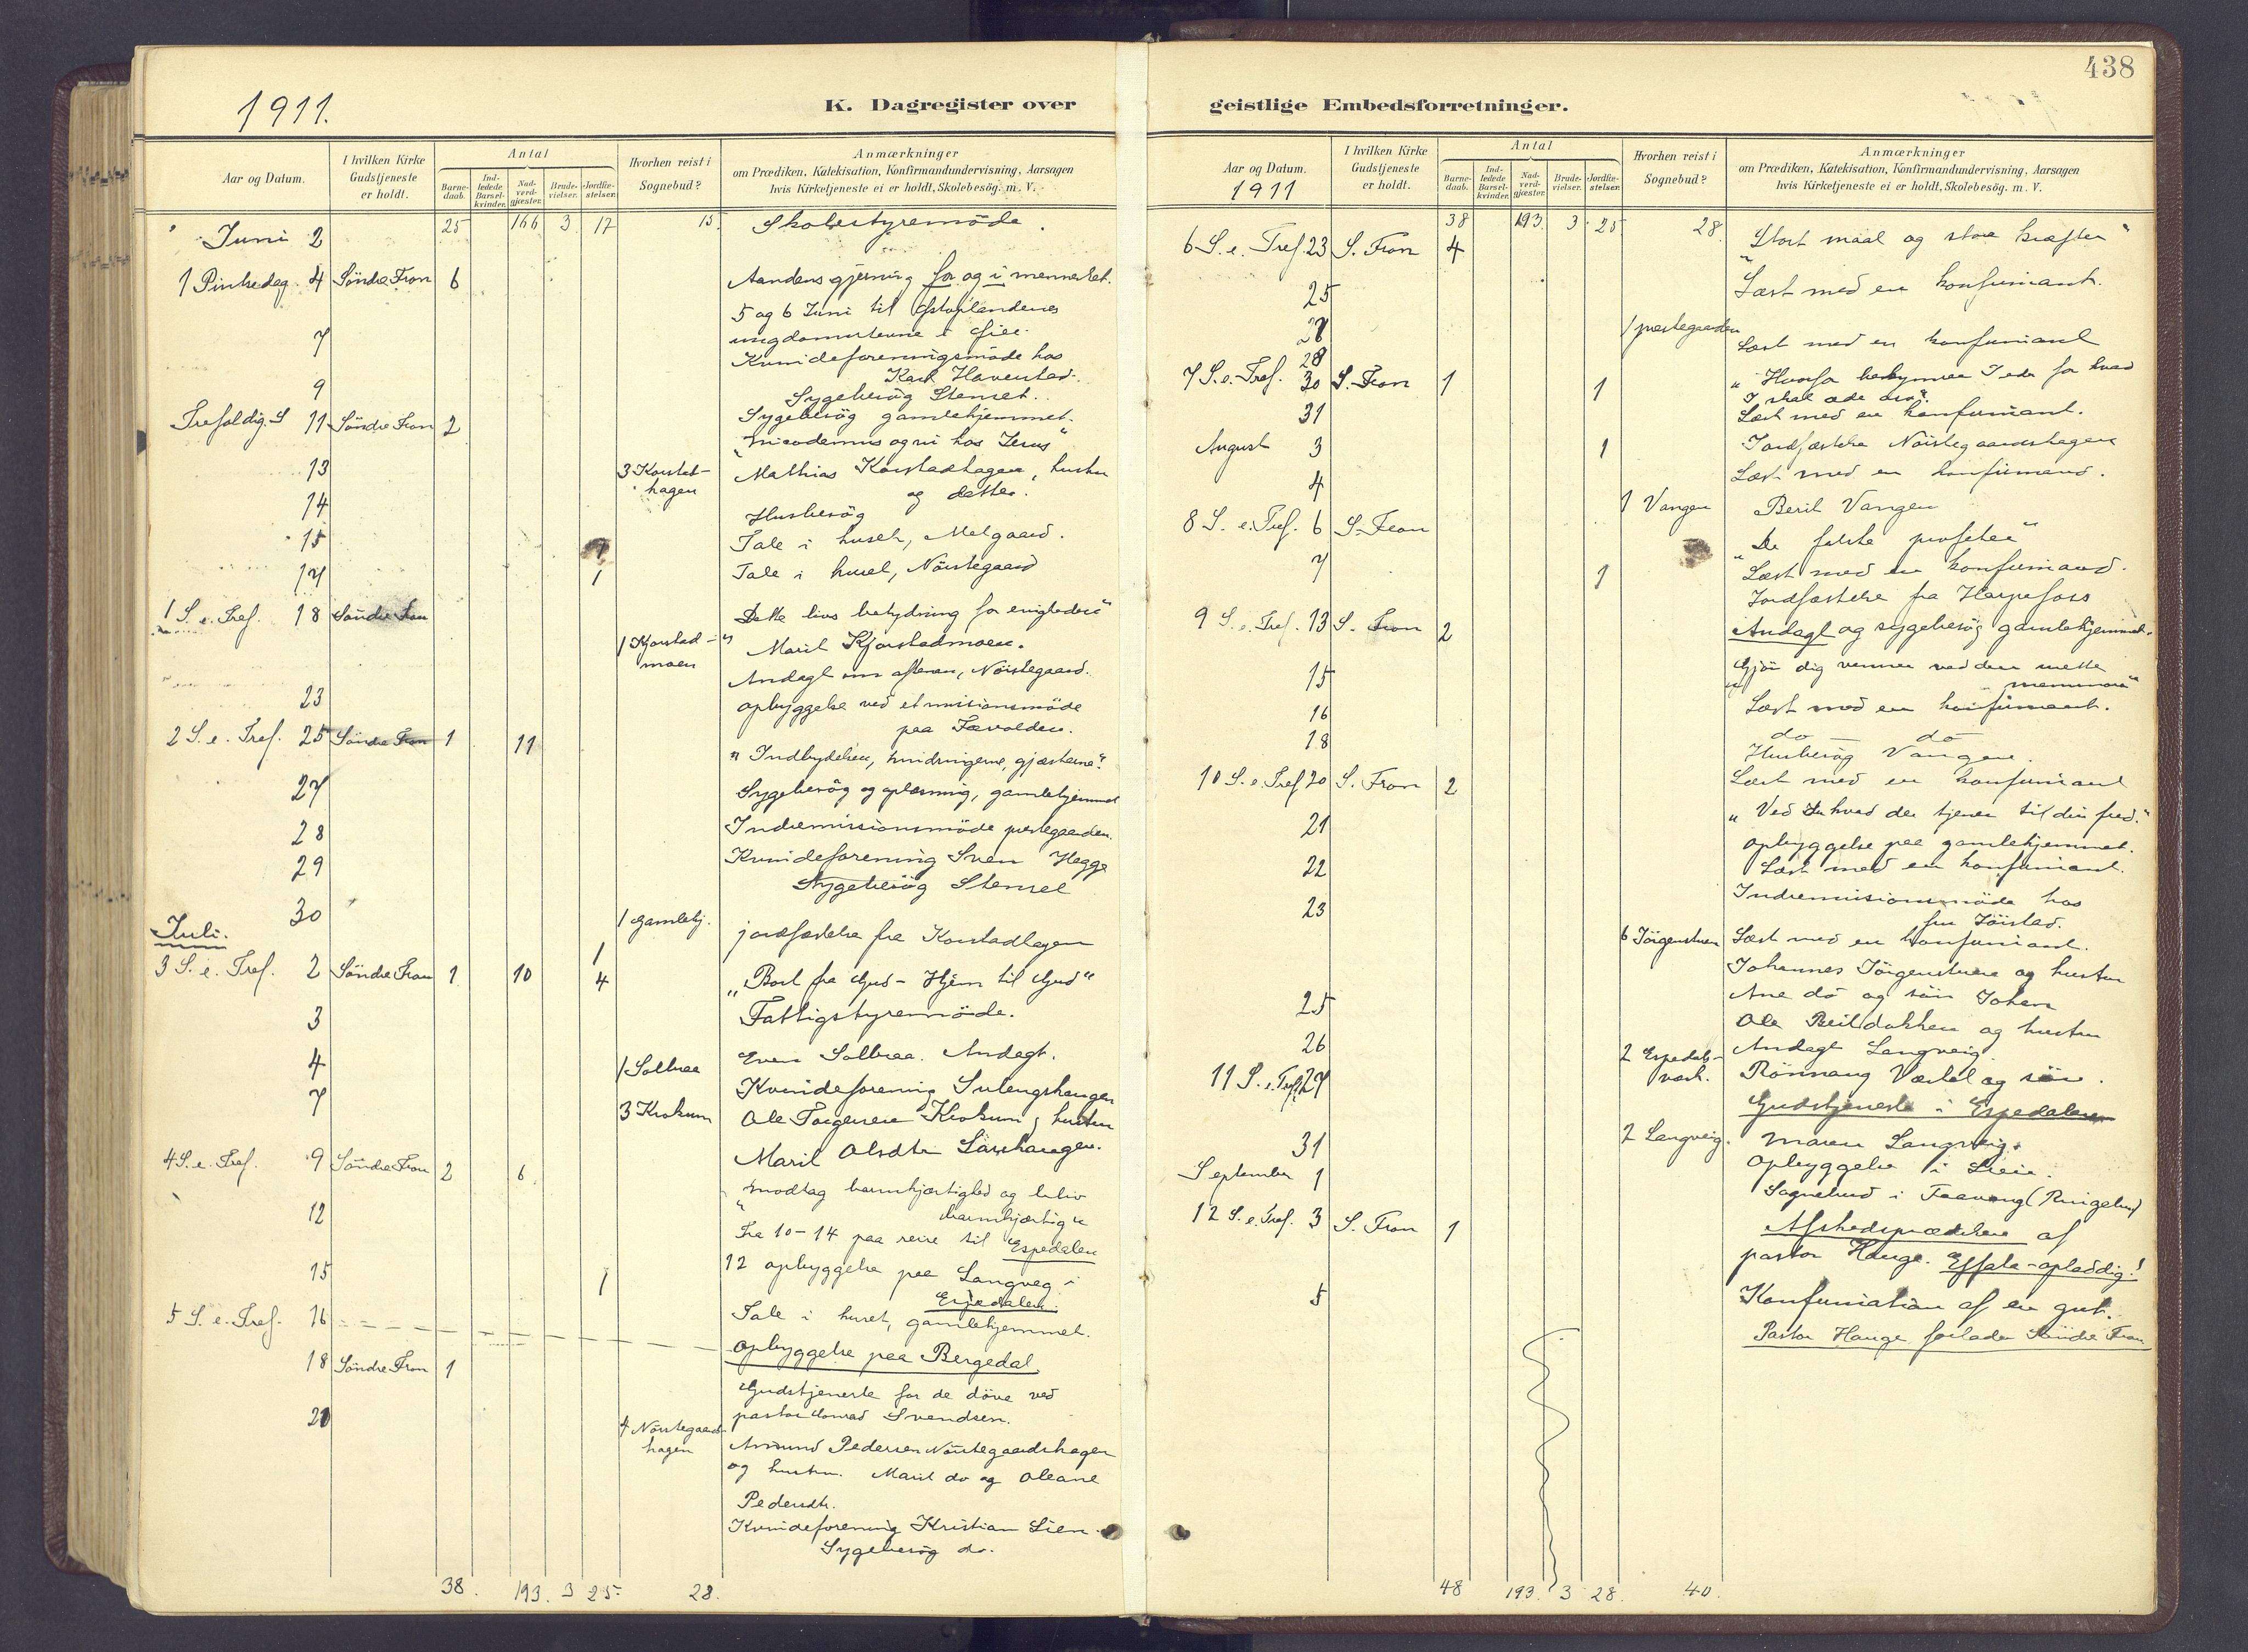 1911.
K. Dagregister over
Aar og Datum.
I hvilken Kirke Gudstjeneste er holdt.
Antal
Barne-daab.
Ind-ledede Barsel-kvinder.
Nad-verd-gjæster.
Brude-vielser.
Jordfæ-stelser.
Hvorhen reist i Sognebud?
Anmærkninger
om Prædiken, Katekisation, Konfirmandundervisning, Aarsagen
hvis Kirketjeneste ei er holdt, Skolebesög. m. V.
Juni 2 25 166 3 17 15. Skolestyremöde.
1 Pinsedag. 4 Söndre Fron 6 Aandens gjerning for og i mennesket.
5 og 6 Juni til Oplandenes
7 ungdomsstevne i
Kvindeforeningsmöde hos
Havenstad.
9 Sygebesög Stenset.
Trefoldig. S 11 Söndre Fron 2 Sygebesög gamlehjemmet.
"Nicodemus og vi hos Jesus"
13 3 Korstad-hagen Mathias Korstadhagen, hustru
og datter.
14 Husbesög
15 1 Tale i huset, Melgaard.
17 1 Tale i huset, Nörstegaard
1 S. e. Tref. 18 Söndre Fron Dette livs betydning for evigheden"
1 Kjorstad-moen Marit Kjorstadmoen.
Andagt om aftenen, Nörstegaard.
23 opbyggelse ved et missionsmöde
paa
2 S. e. Tref. 25 Söndre Fron 1 11 "Indbydelsen, hindringerne, gjæsterne".
27 Sygebesög og oplæsning, gamlehjemmet
28 Indremissionsmöde prestegaarden.
29 Kvindeforening Sven Hegge
Sygebesög Stenset
30 1 Gamlehj.
Juli. 1 jordfæstelse fra Korstadhagen
3 S. e. Tref. 2 Söndre Fron 1 10 4 "Bort fra Gud - Hjem til Gud"
3 Fattigstyremöde.
4 1 Solbraa Even Solbraa. Andagt.
7 Kvindeforening
3 Krokum Ole Torgersen Krokum, hustru
Marit Olsdtr
4 S. e. Tref. 9 Söndre Fron 2 6 "modtag barmhjærtighed og bliv
barmhjærtig"
12 Fra 10-14 paa reise til Espedalen
12 opbyggelse paa Langveg i
Espedalen.
15 1 Tale i huset, gamlehjemmet.
5 S. e. Tref. 16 opbyggelse paa Bergedal
18 Söndre Fron 1 Gudstjeneste for de döve ved
pastor Conrad Svendsen.
20 4 Nörstegaards-hagen Amund Pedersen Nörstegaardshagen
og hustru. Marit do og Oleane
Pedersdtr.
Kvindeforening Kristian Lien.
Sygebesög do.
38. 193. 3 25. 28.
438
geistlige Embedsforretninger.
Aar og Datum.
1911
I hvilken Kirke Gudstjeneste er holdt.
Antal
Barne-daab.
Ind-ledede Barsel-kvinder.
Nad-verd-gjæster.
Brude-vielser.
Jordfæ-stelser.
Hvorhen reist i Sognebud?
Anmærkninger
om Prædiken, Katekisation, Konfirmandundervisning, Aarsagen
hvis Kirketjeneste ei er holdt, Skolebesög. m. V.
38 193. 3 25 28.
6 S. e. Tref. 23 S. Fron 4 "Stort maal og store kræfter"
25 Læst med en konfirmant.
27 1 prestegaarden
28 Læst med en konfirmant
7 S. e. Tref. 30 S. Fron 1 1 "Hvorfor bekymrer I eder for hvad
I skal æde osv".
31 Læst med en konfirmant.
August 3 1 Jordfæstelse Nörstegaardshagen
4 Læst med en konfirmand.
1 Vangen Berit Vangen
8 S. e. Tref. 6 S. Fron "De falske profeter"
7 1 Læst med en konfirmand.
Jordfæstelse fra Harpefoss
9 S. e. Tref. 13 S. Fron 2 Andagt og sygebesög gamlehjemmet.
"Gjör dig venner ved den urette
mammon"
15 Læst med en konfirmant.
16 do do
18 Husbesög Vangen.
Læst med en konfirmant
10 S. e. Tref 20 S. Fron 2 "Ved du hvad der tjener til din fred."
21 opbyggelse paa gamlehjemmet.
22 Læst med en konfirmant.
23 Indremissionsmöde hos
fru
6 Jörgenstuen Læst med en konfirmant.
Johannes Jörgenstuen og hustru
25 Ane do og sön Johan
Ole og hustru
26 Andagt Langveig.
2 Espedals-værk. Rönnaug og sön.
11 S. e. Tref. 27 Gudstjeneste i Espedalen
2 Langveig. Maren Langveig.
31 opbyggelse i
September 1 Sognebud i Faavang (Ringebu)
12 S. e. Tref. 3 S. Fron 1 Afskedsprædiken af
pastor Hauge. Effata-oplad dig!
5 Konfirmation af en gut.
Pastor Hauge forlader Söndre Fron
48 193. 3 28. 40.